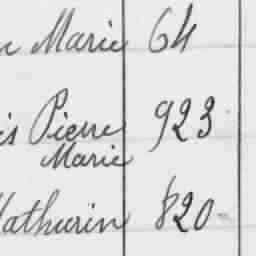 Marie 64
Pierre 923
Marie
Mathurin 820